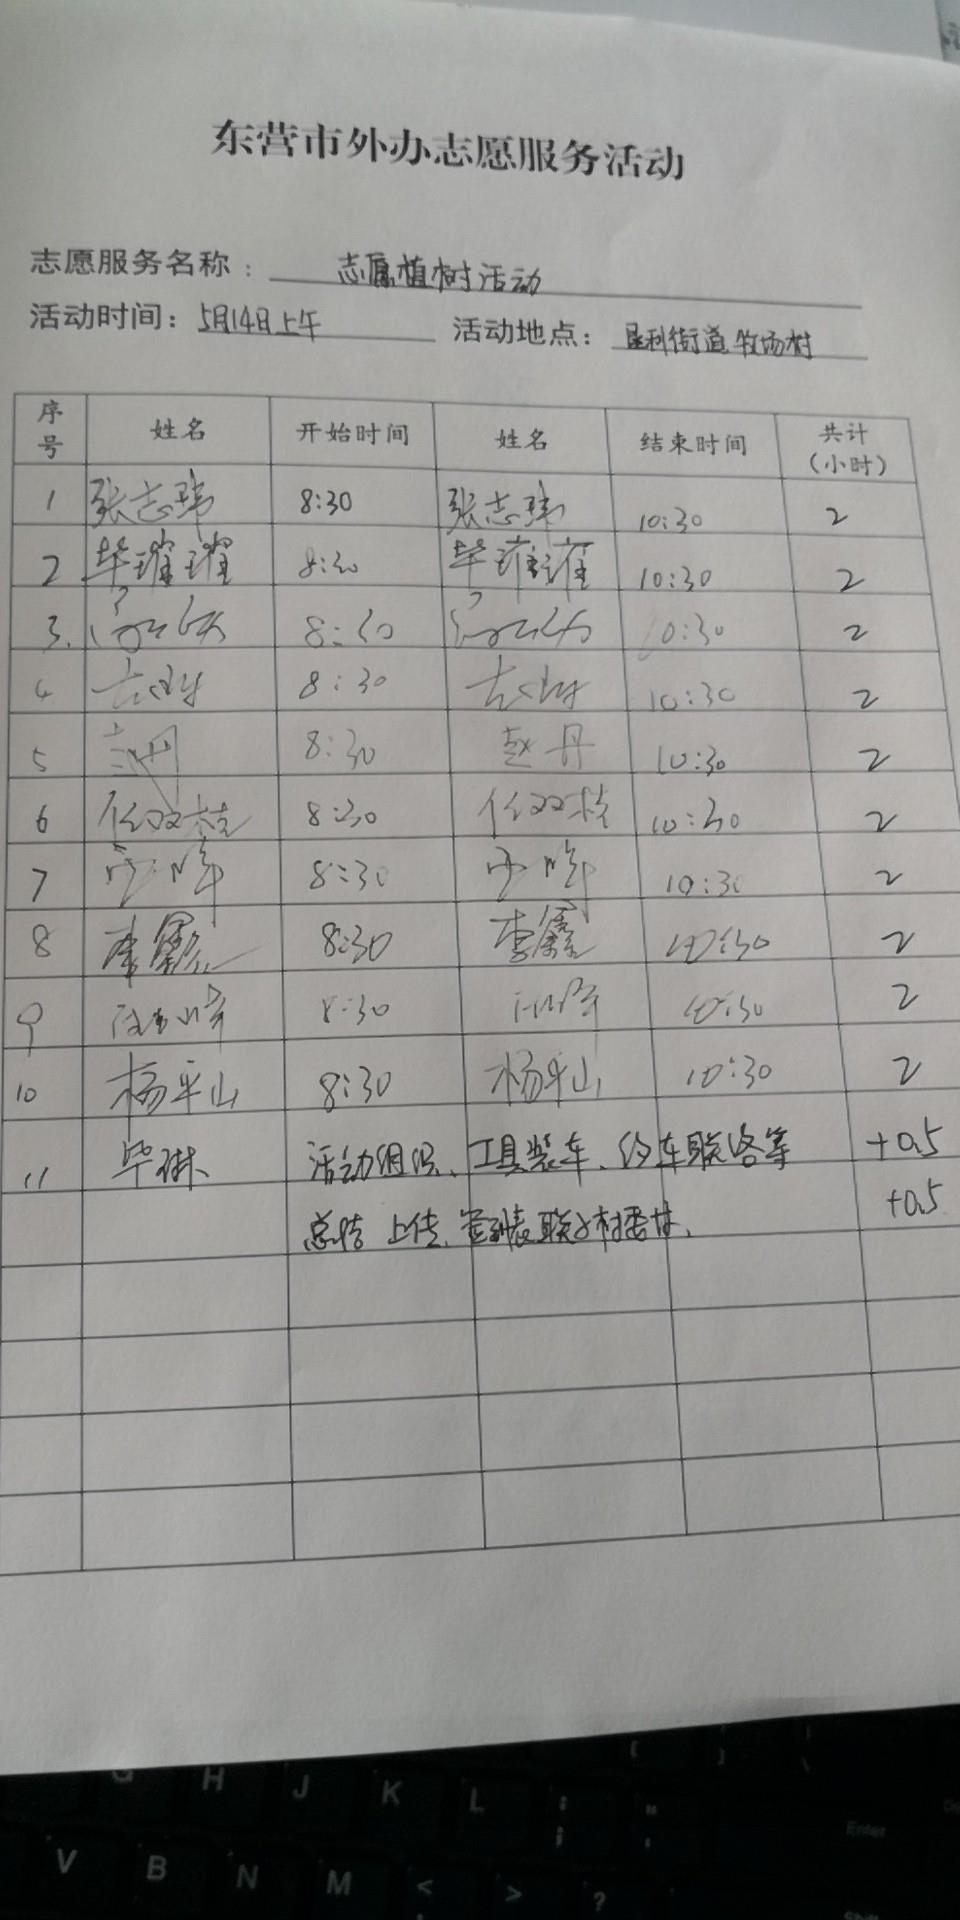 东营市外办志愿服务活动
志愿服务名称：志愿植树活动
活动时间：5月14日上午 活动地点：垦利街道牧场村
序号 姓名 开始时间 姓名 结束时间 共计（小时）
1 张志玮 8:30 张志玮 10:30 2
2 毕璀璀 8:30 毕璀璀 10:30 2
3. 8:30 10:30 2
4 8:30 10:30 2
5 赵丹 8:30 赵丹 10:30 2
6 任双桂 8:30 任双桂 10:30 2
7 8:30 10:30 2
8 李鑫 8:30 李鑫 10:30 2
9 8:30 10:30 2
10 杨平山 8:30 杨平山 10:30 2
11 毕琳 活动组织、工具装车、约车联络等 +0.5
总结 上传、签到表 联 村委 +0.5
G H J K L ; " Enter
V B N M < > ? Shift